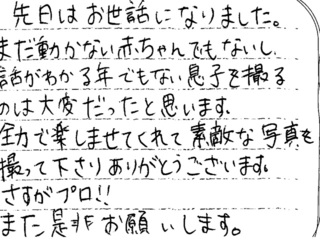 先日はお世話になりました。
まだ動かない赤ちゃんでもないし
話がわかる年でもない息子を撮る
のは大変だったと思います。
全力で楽しませてくれて素敵な写真を
撮って下さりありがとうございます。
さすがプロ!!
また是非お願いします。